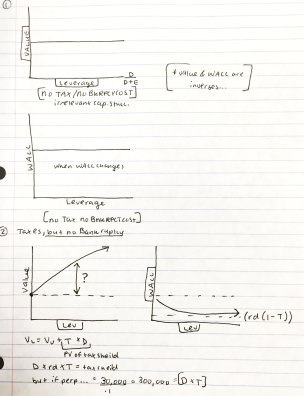 ①
VALUE
Leverage
D
D+E
[no TAX/no BNKRPLCT COST]
irrelevant cap. struc.
* value & WACC are
inverses...
WACC
when WACC changes
Leverage
[no Tax no BNKRPLCT COST]
② Taxes, but no Bankruptcy
Value
?
Lev
WACC
(rd(1-T))
Lev
VL = VU + T × D
PV of tax sheild
D × rd × T = tax sheild
but if perp... = 30,000 = 300,000 = [D × T]
.1